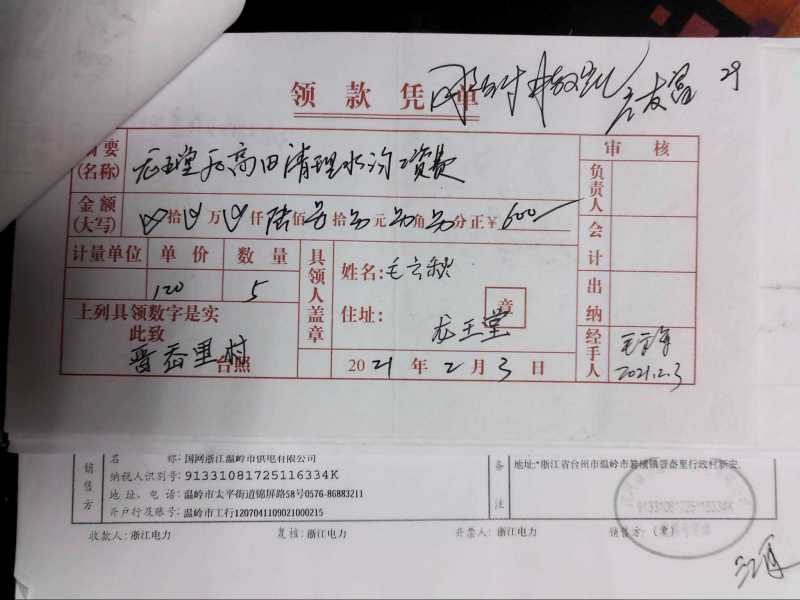 领款凭单
29
摘要(名称) 龙王堂 高田清理水沟工资费
审核
金额(大写) 拾 万 仟陆佰零拾零元零角零分正¥600
负责人
会计
出纳
经手人
2021.2.3
计量单位 单价 数量
120 5
具领人盖章
姓名:毛云秋
章
住址:龙王堂
上列具领数字是实
此致
晋岙里村
台照
2021年2月3日
销售方
名称:国网浙江温岭市供电有限公司
纳税人识别号:91331081725116334K
地址、电话:温岭市太平街道锦屏路58号0576-86883211
开户行及账号:温岭市工行1207041109021000215
备注
地址:*浙江省台州市温岭市箬横镇晋岙里行政村新安
91331081725116334K
收款人:浙江电力 复核:浙江电力 开票人:浙江电力 销售方:(章)